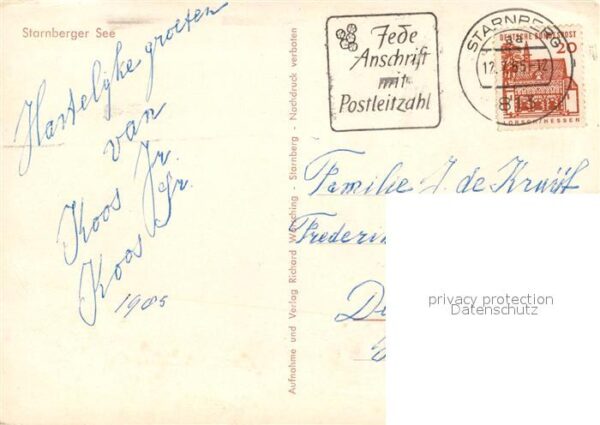 Starnberger See
Hartelijke groeten
van
Koos Jr.
Koos Sr.
1965
Aufnahme und Verlag Richard Wörsching - Starnberg - Nachdruck verboten
Jede
Anschrift
mit
Postleitzahl
STARNBERG
aa
12.7.65-12
813
DEUTSCHE BUNDESPOST
20
LORSCH/HESSEN
Familie J. de Kruijf
Frederi
D
privacy protection
Datenschutz